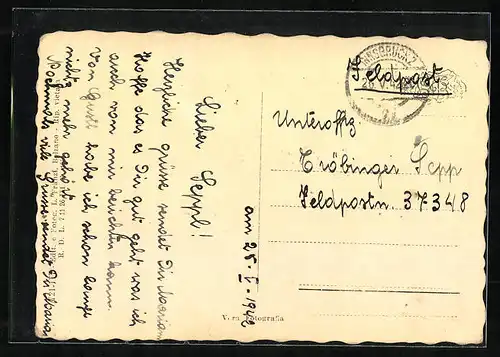 am 25. V. 1942
Lieber Seppl!
Herzliche grüsse sendet Dir Mariann
Hoffe das es Dir gut geht was ich
auch von mir berichten kann.
Von Gustl habe ich schon lange
nichts mehr gehört
Nochmals viele Grüsse sendet Dir Mariann
V. ra Fotografia
INNSBRUCK 2
Feldpost
Unteroffz
Tröbinger Sepp
Feldpostn. 37348